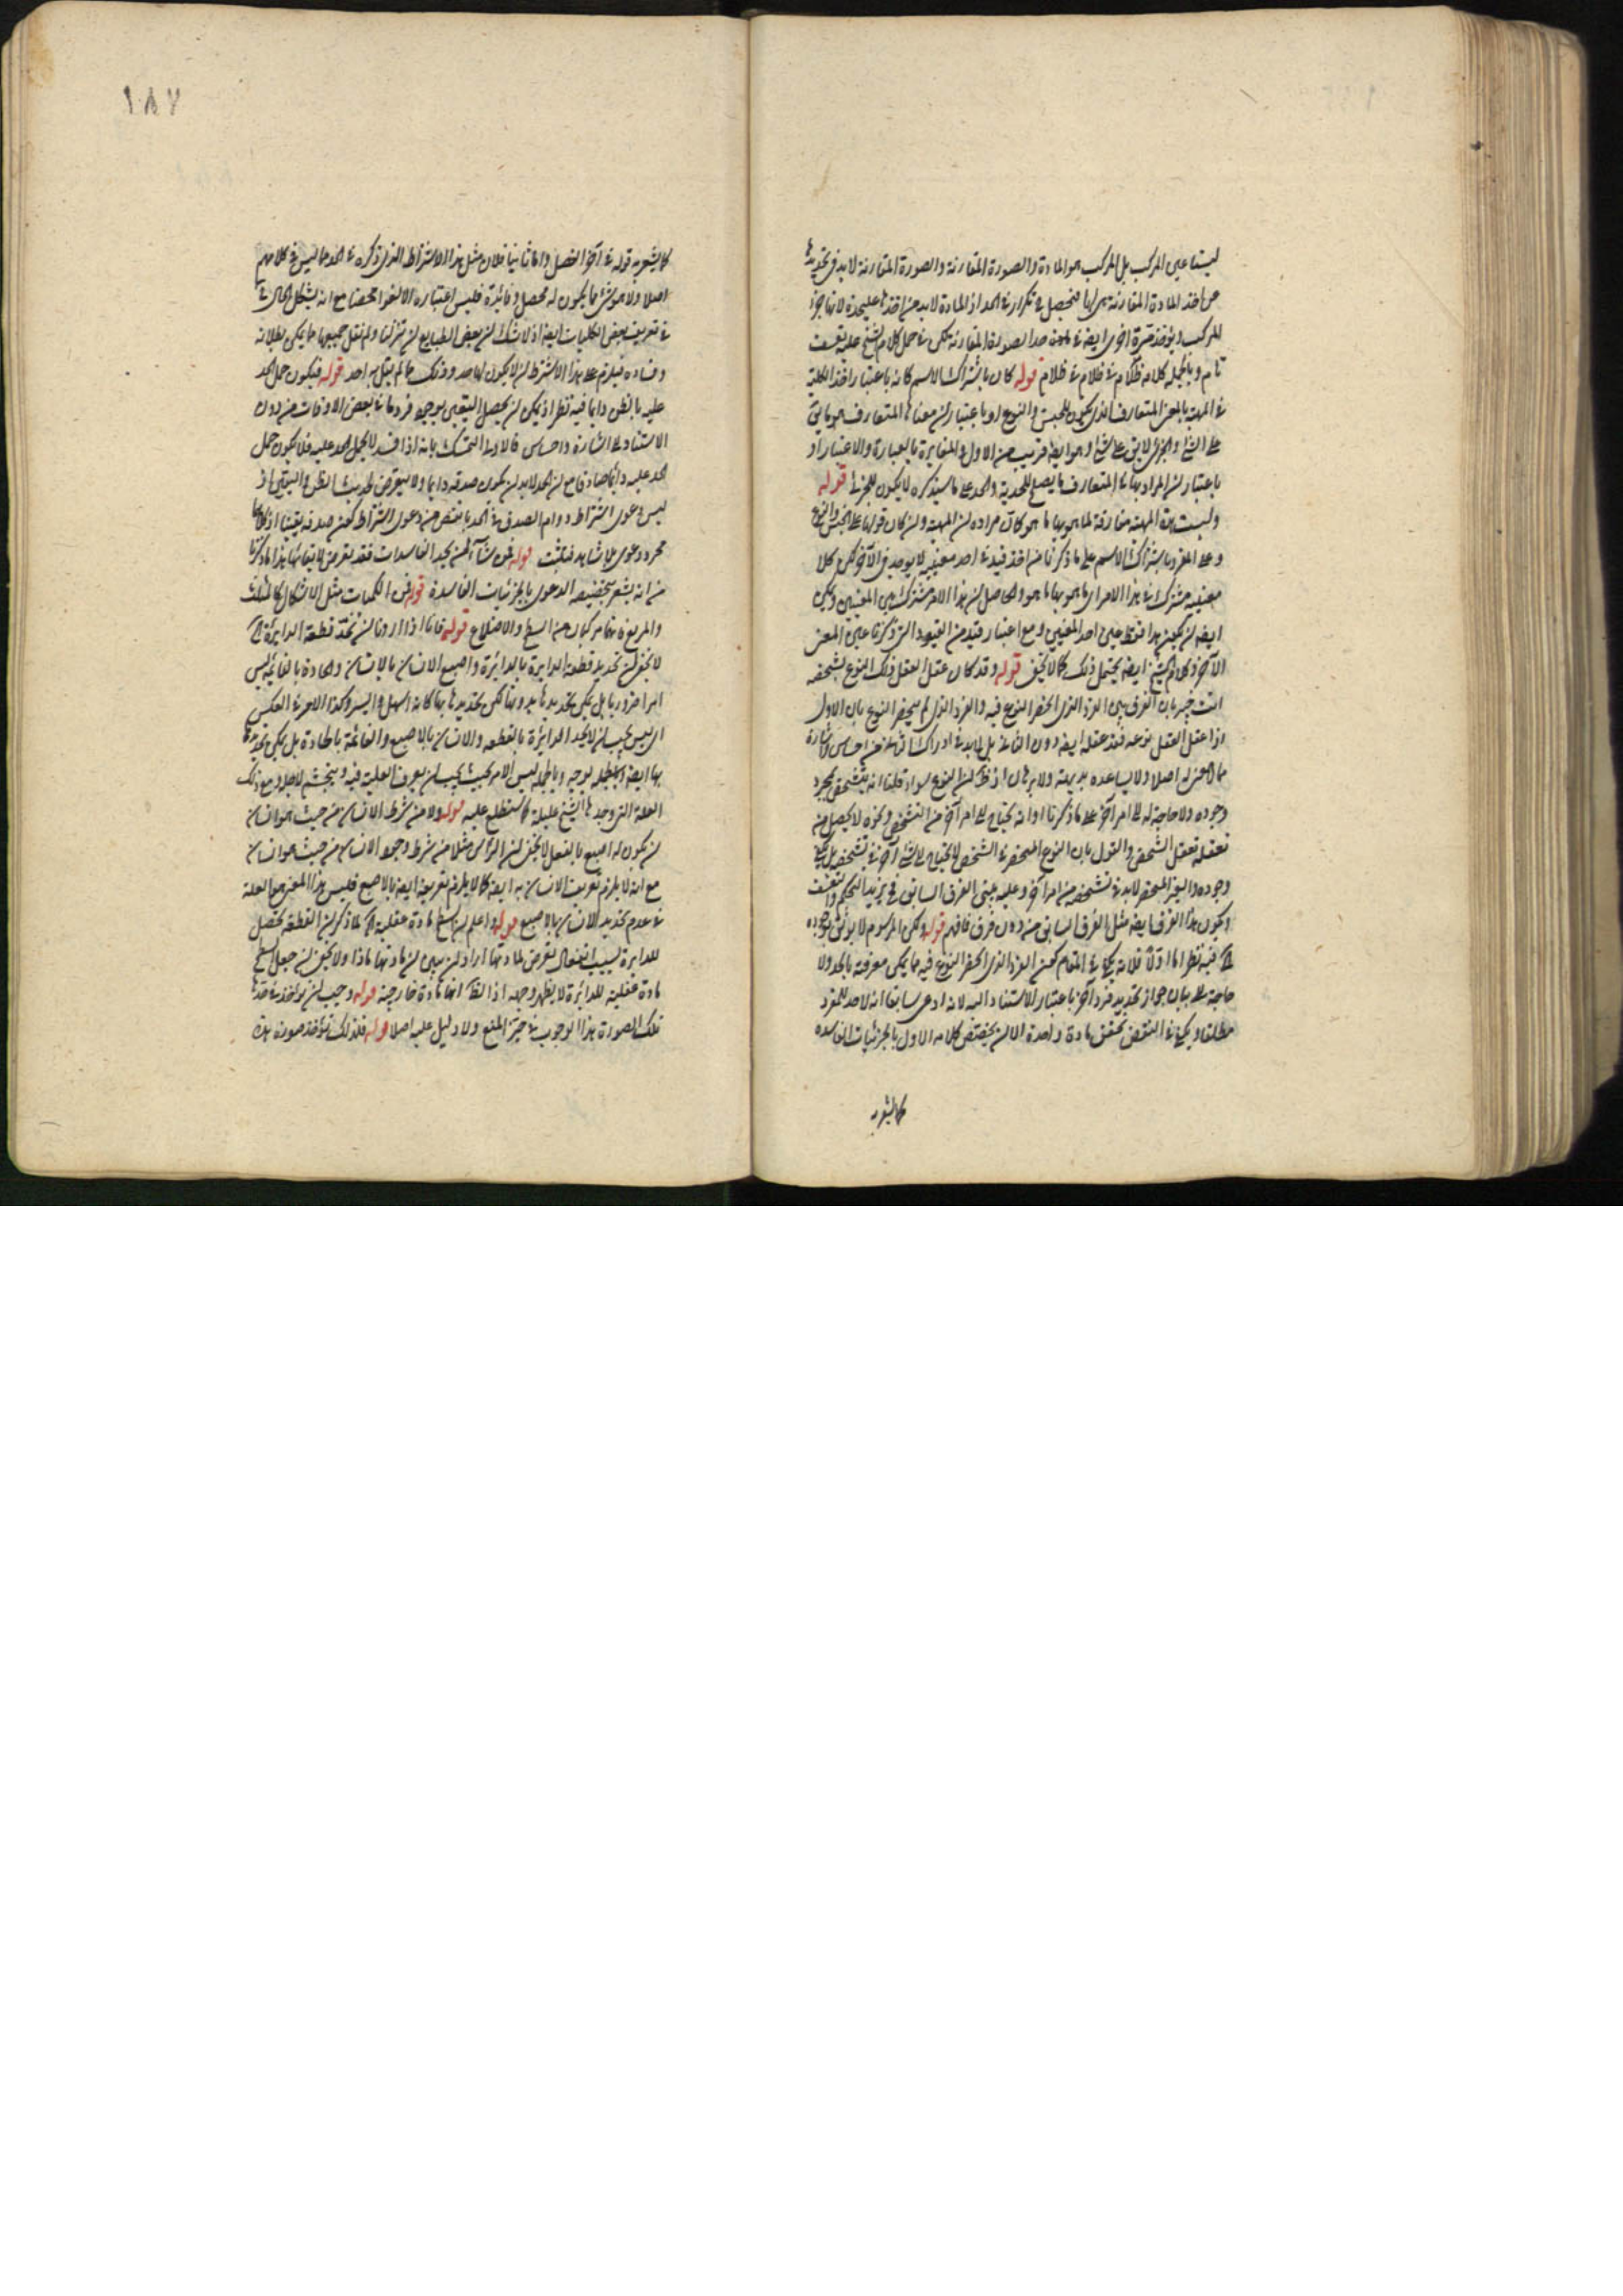 ليستا عين المركب بل المركب هو المادة والصورة المقارنة والصورة المقارنة لابد في تحديدها
من اخذ المادة المقارنة هي لها فيحصل تكرار في الحد اذ المادة لابد من اخذها عليحدة لانها جزء
المركب ويؤخذ مرة اخرى ايضا في حد الصورة المقارنة لكن في حمل كلام الشيخ عليه تعسف
تام وبالجملة كلامه ظلام في ظلام قوله كان باشتراك الاسم كانه باعتبار اخذ الكلية
في المهية بالمعنى المتعارف الذي يكون للجنس والنوع او باعتبار ان معناها المتعارف هو ما يق
على الشئ والجزئي لا يق على شئ وهو ايضا قريب من الاول والمغايرة بالعبارة والاعتبار او
باعتبار ان المراد بها المتعارف ما يصلح للحدية والحد على ما سيذكره لا يكون للجزئي قوله
وليست هذه المهية مفارقة لما هو بها ما هو كان مراده ان المهية وان كان قولها على الجنس والنوع
وعلى المفرد باشتراك الاسم على ما ذكرنا من اخذ قيد في احد معنييه لا يوجد في الآخر لكن كلا
معنييه مشترك في هذا الامر اي ما هو بها ما هو والحاصل ان هذا الامر مشترك بين المعنيين ولكن
ايضا ان يكون هذا فقط عين احد المعنيين ومع اعتبار قيد من القيود التي ذكرنا عين المعنى
الآخر وكلام الشيخ ايضا يحتمل ذلك كما لا يخفى قوله وقد كان عقل العقل ذلك النوع بشخصه
انت خبير بان الفرق بين الفرد الذي انحصر النوع فيه والفرد الذي لم ينحصر النوع بان الاول
اذا عقل العقل نوعه فقد عقله ايضا دون الثاني بل لابد في ادراك الثاني من احساس واشارة
مما لا معنى له اصلا ولا يساعده بديهة ولا برهان اذ نظر ان النوع سواء قلنا انه يتشخص بمجرد
وجوده ولا حاجة له الى امر آخر على ما ذكرنا او انه يحتاج الى امر آخر من التشخص ونحوه لا يحصل من
تعقله تعقل الشخص والقول بان النوع المنحصر في الشخص لا يحتاج الى شئ آخر في تشخصه بل يكفي
وجوده والغير المنحصر لابد في تشخصه من امر آخر وعليه يبتنى الفرق السابق في يزيد التحكم والتعسف
ويكون هذا الفرق ايضا مثل الفرق السابق من دون فرق فافهم قوله ولكن المرسوم لا يوثق بوجوده
الخ فيه نظر اما اولا فلانه يكفي في المقام كون الفرد الذي انحصر النوع فيه مما يمكن معرفته بالحد ولا
حاجة الى بيان جواز تحديد فرد آخر باعتبار الاستناد اليه لانه ادعى سابقا انه لا حد للمفرد
مطلقا ويكفي في النقض تحقق مادة واحدة الا ان يختص كلامه الاول بالجزئيات الفاسدة
كما يشعر به
١٨٧
كما يشعر به قوله في آخر الفصل واما ثانيا فلان مثل هذا الاشتراط الذي ذكره في الحد مما ليس في كلامهم
اصلا ولا هو شئ مما يكون له محصل وفائدة فليس اعتباره الا لغوا محضا مع انه يشكل الحال
في تعريف بعض الكليات ايضا اذ لا شك ان بعض الطبايع ان تنزلنا ولم نقل جميعها مما يمكن بطلانه
وفساده فيلزم على هذا الاشتراط ان لا يكون لها حد وذلك مما لم يقل به احد قوله فيكون حمل الحد
عليه بالظن دايما فيه نظر اذ يمكن ان يحصل اليقين بوجود فرد ما في بعض الاوقات من دون
الاستناد الى اشارة واحساس فالاولى التمسك بانه اذا فسد لا يحمل الحد عليه فلا يكون حمل
الحد عليه دائما صادقا مع ان الحد لابد ان يكون صدقه دايما ولا يتعرض لحديث الظن واليقين اذ
ليس دعوى اشتراط دوام الصدق في الحد بانقص من دعوى اشتراط كون صدقه يقينا اذ كلاهما
مجرد دعوى بلا شاهد فيثبت قوله فمن شاء ان يحد الفاسدات فقد تعرض لابقائها هذا ما ذكرنا
من انه يشعر بتخصيصه الدعوى بالجزئيات الفاسدة قوله فمن الكميات مثل الاشكال كالمثلث
والمربع فانهما مركبان من السطح والاضلاع قوله فانا اذا اردنا ان نحد قطعة الدايرة الخ
لا يخفى ان تحديد قطعة الدايرة بالدائرة واصبع الانسان بالانسان والحادة بالقائمة ليس
امرا ضروريا بل يمكن تحديدها بدونها لكن تحديدها بها كانه اسهل وايسر وكذا الامر في العكس
اي ليس يجب ان لا يحد الدائرة بالقطعة والانسان بالاصبع والقائمة بالحادة بل يمكن تحديدها
بها ايضا بوجه وبالجملة ليس الامر بحيث يجب ان يعرف العلية فيه ويتجشم لاجله ومع ذلك
العلة التي وجدها الشيخ عليلة كما ستطلع عليه قوله ولا من شرط الانسان من حيث هو انسان
ان يكون له اصبع بالفعل لا يخفى ان الرأس مثلا من شرط وجود الانسان من حيث هو انسان
مع انه لا يلزم تعريف الانسان به ايضا كما لا يلزم تعريفه ايضا بالاصبع فليس هذا المعنى هو العلة
في عدم تحديد الانسان بالاصبع قوله واعلم ان السطح مادة عقلية الخ لما ذكر ان القطعة تحصل
للدايرة بسبب انفعال تعرض لمادتها اراد ان يبين ان مادتها ماذا ولا يخفى ان جعل السطح
مادة عقلية للدائرة لا يظهر وجهه اذ الظ انها مادة خارجية قوله وجب ان يؤخذ في حدها
تلك الصورة هذا الوجوب في حيز المنع ولا دليل عليه اصلا قوله فلذلك تؤخذ صورة هذه